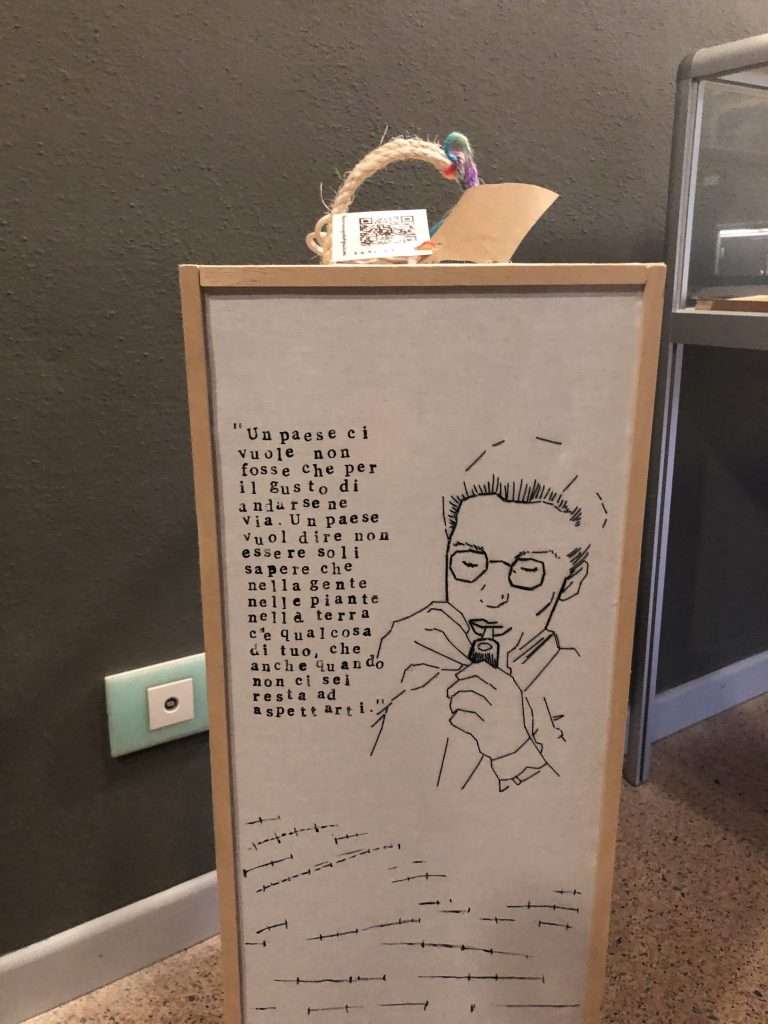 "Un paese ci
vuole non
fosse che per
il gusto di
andarsene
via. Un paese
vuol dire non
essere soli
sapere che
nella gente
nelle piante
nella terra
c'è qualcosa
di tuo, che
anche quando
non ci sei
resta ad
aspettarti."